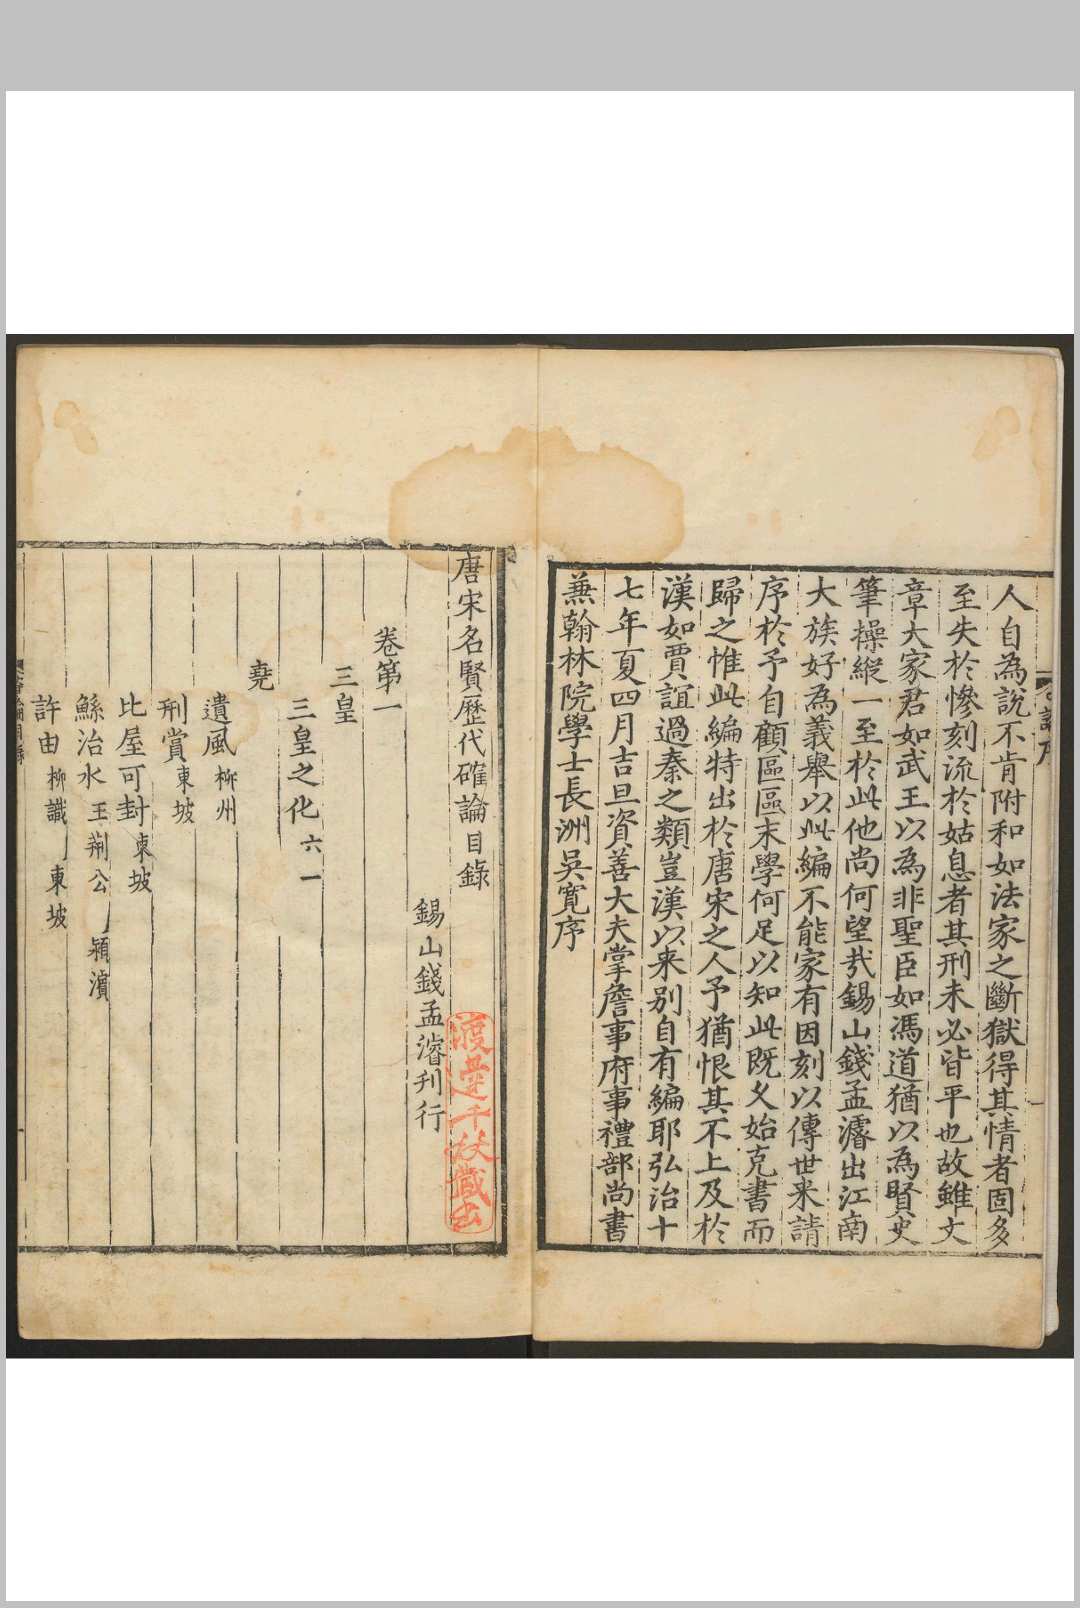 人自為說不肯附和如法家之斷獄得其情者固多
至失於慘刻流於姑息者其刑未必皆平也故雖文
章大家君如武王以為非聖臣如馮道猶以為賢史
筆操縱一至於此他尚何望㢤錫山錢孟濬出江南
大族好為義舉以此編不能家有因刻以傳世来請
序於予自顧區區末學何足以知此既久始克書而
歸之惟此編特出於唐宋之人予猶恨其不上及於
漢如賈誼過秦之類豈漢以来别自有編耶弘治十
七年夏四月吉旦資善大夫掌詹事府事禮部尚書
蕪翰林院學士長洲吳寬序
唐宋名賢歷代確論目錄
錫山錢孟濬刋行
卷第一
三皇
三皇之化 六一
堯
遺風 栁州
刑賞 東坡
比屋可封 東坡
鯀治水 王荆公 潁濵
許由 栁識 東坡